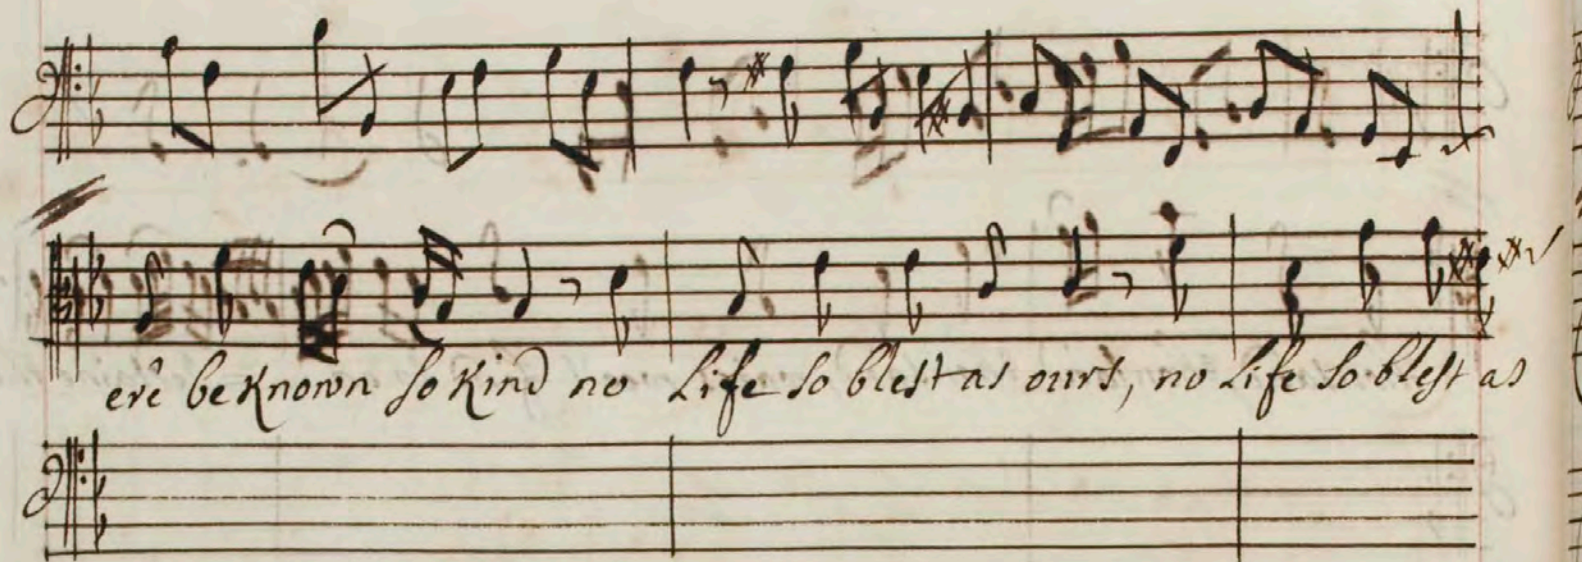 ere be known so kind no Life so blest as ours, no Life so blest as